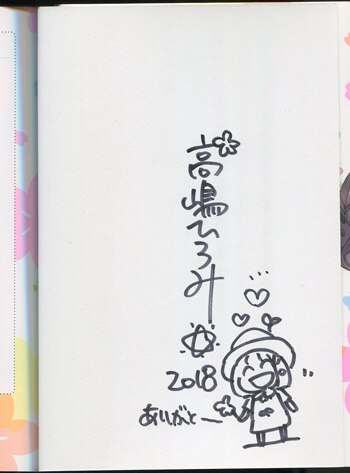 高嶋ひろみ
2018
ありがとー